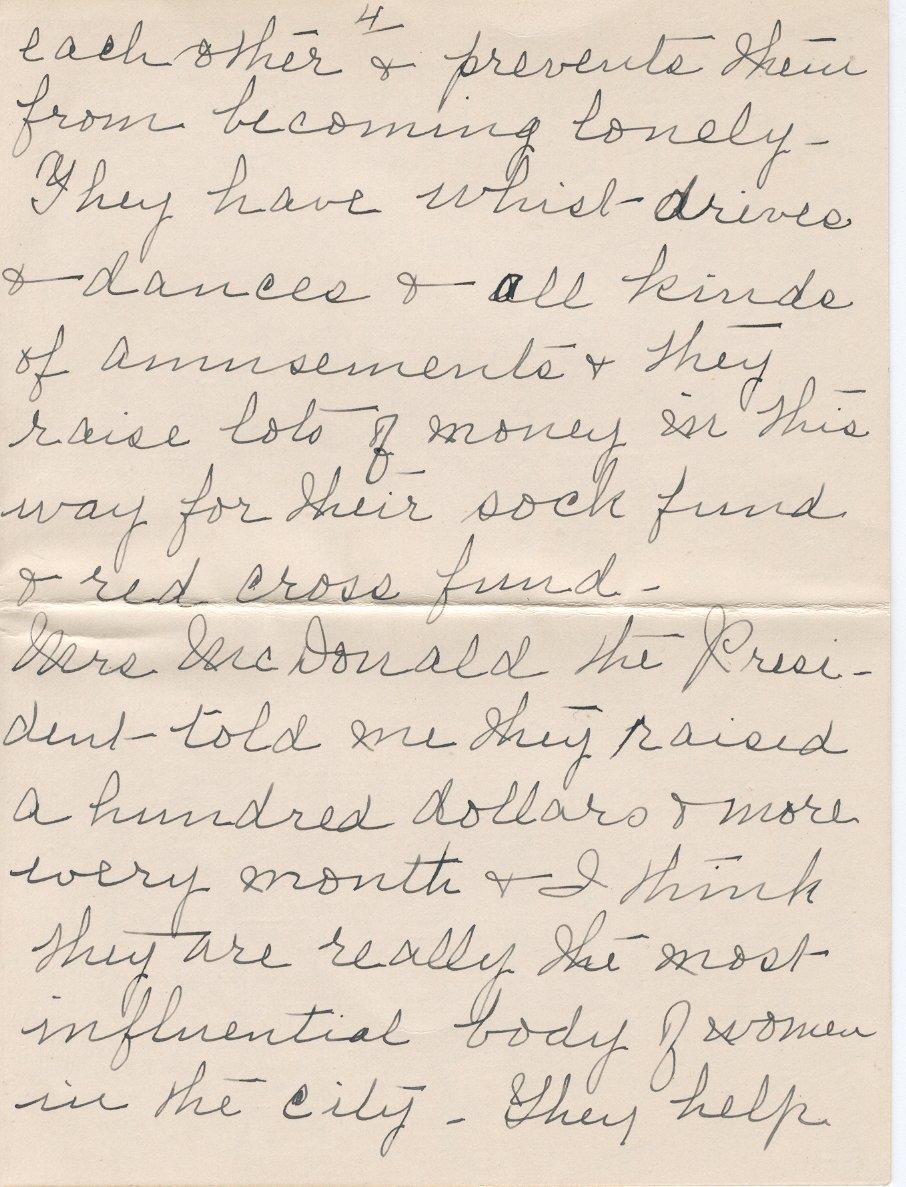 4
each other & prevents them
from becoming lonely -
They have whist drives
& dances & all kinds
of amusements & they
raise lots of money in this
way for their sock fund
& red cross fund -
Mrs McDonald the Presi-
dent told me they raised
a hundred dollars & more
every month & I think
they are really the most
influential body of women
in the city - They help